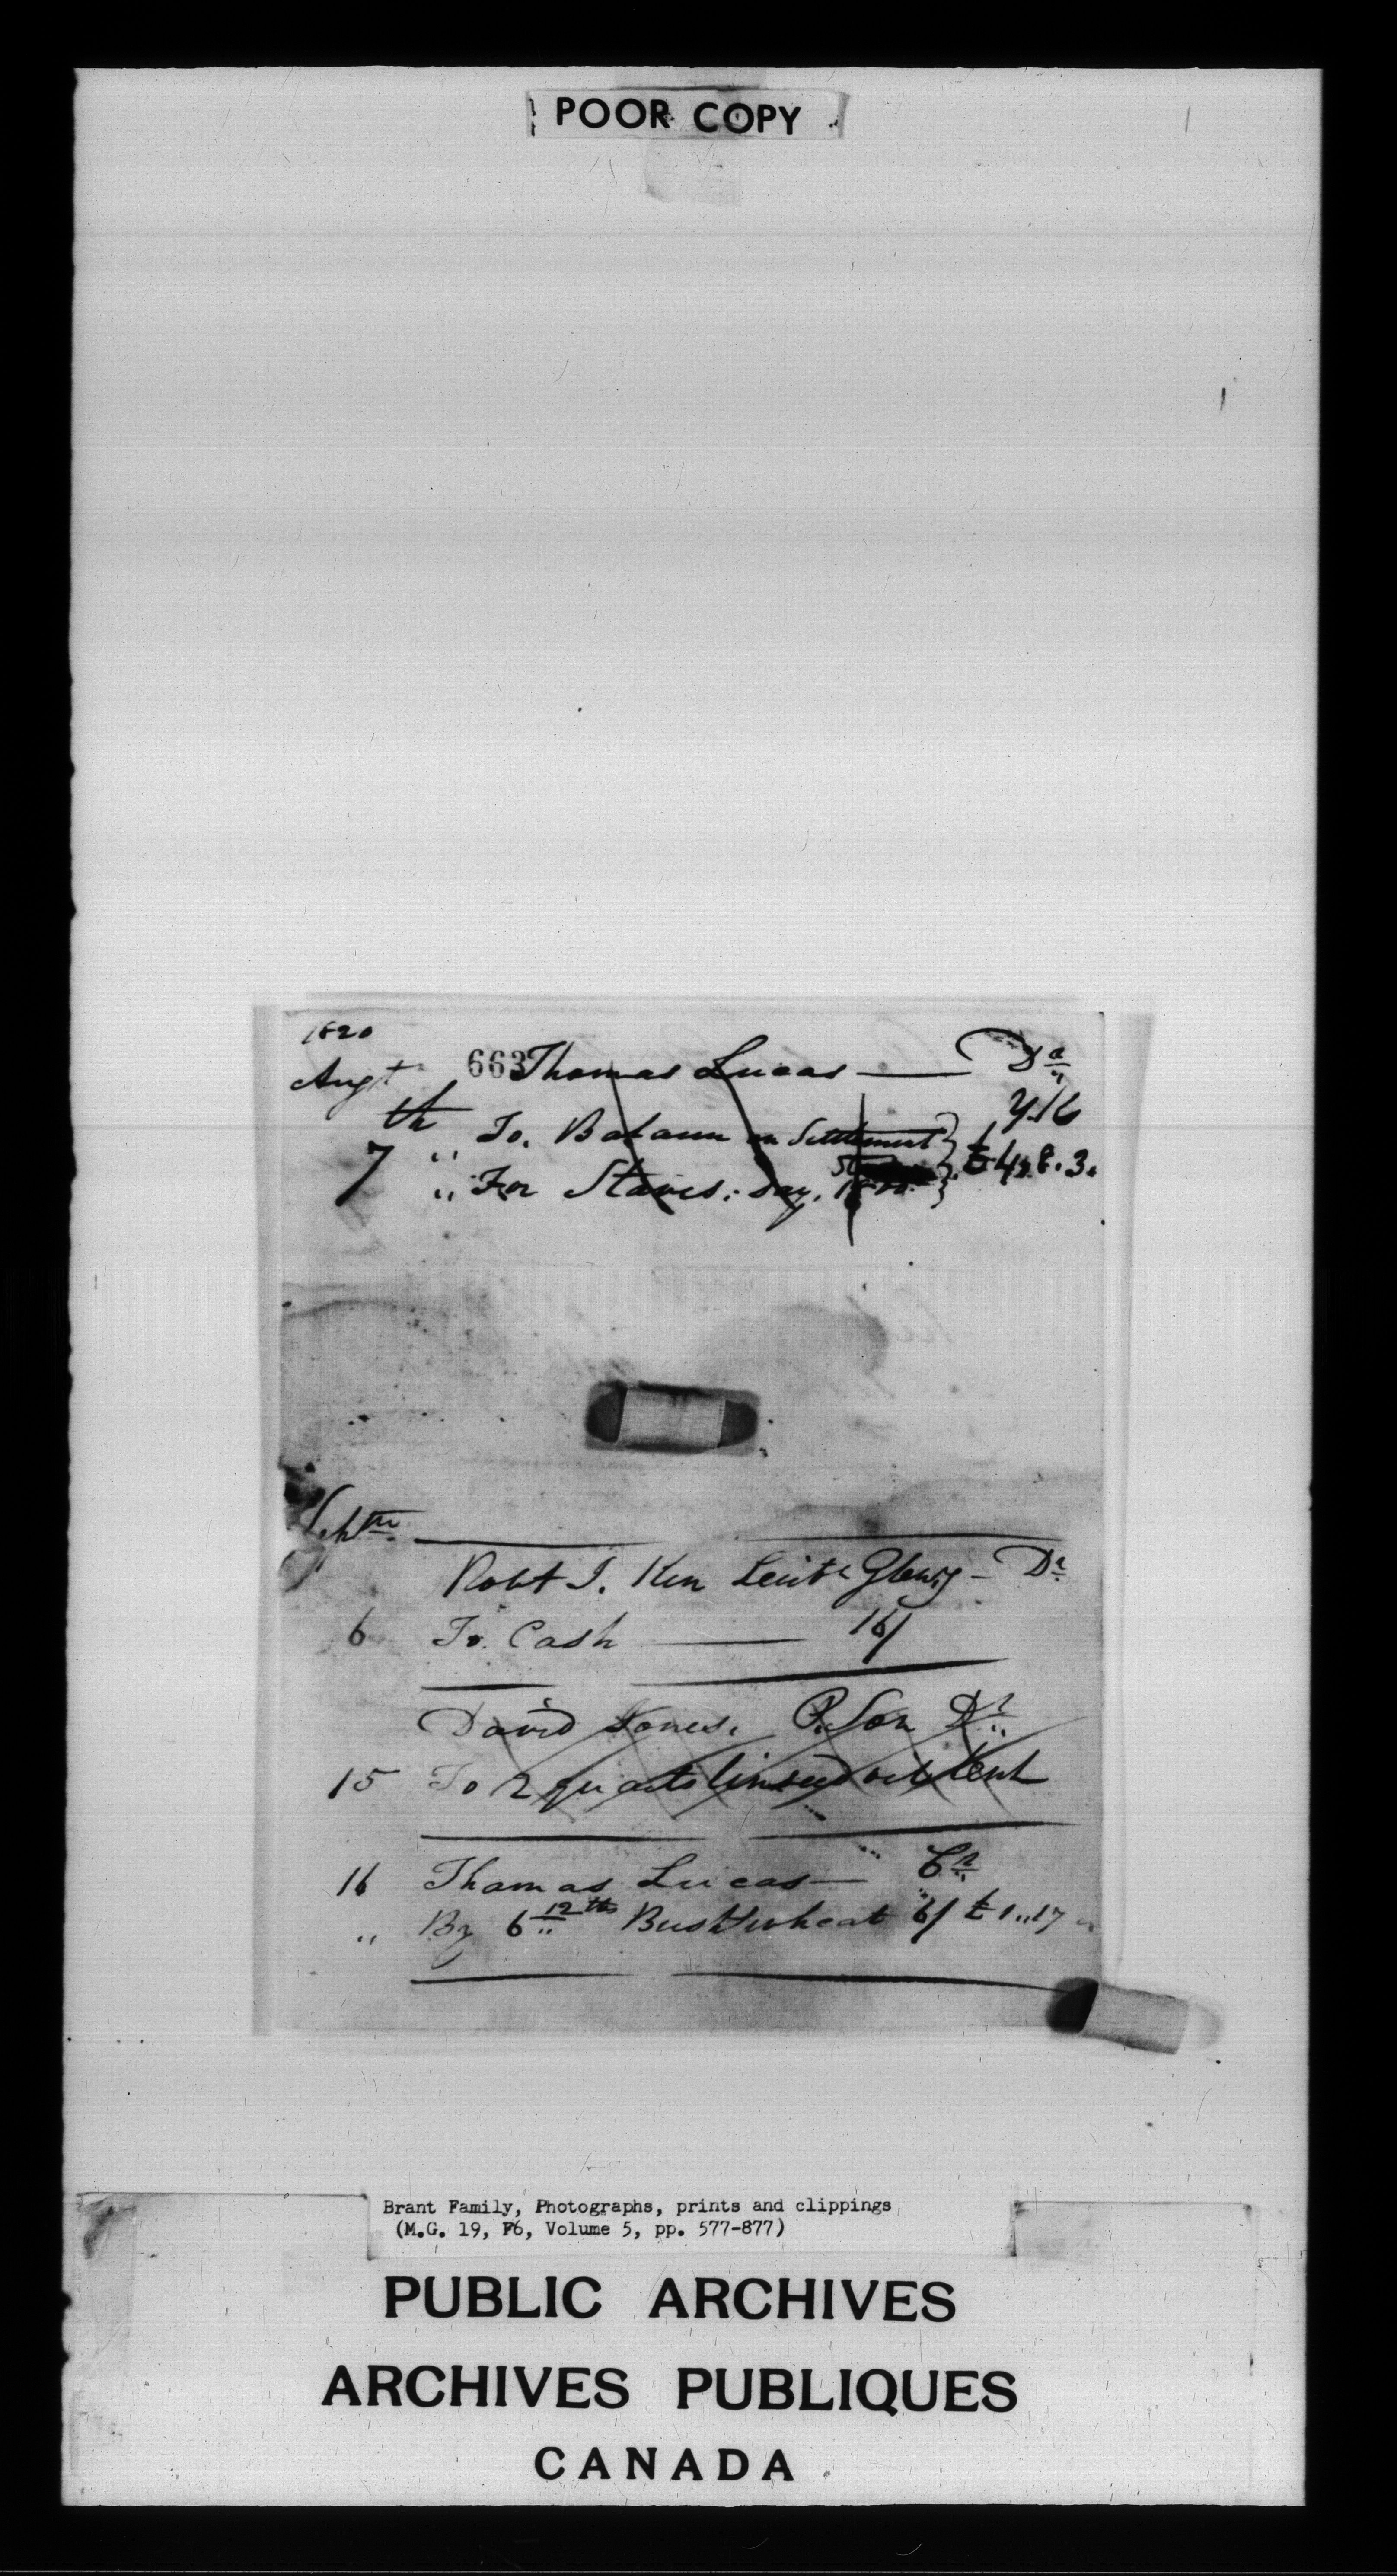 POOR COPY
1820
Augt 663 Thomas Lucas — Dr
th
7 " To. Balann on Settlement } £4,,8.3.
" For Staves: Say,
Septm
Robt I. Kerr Leut Glewy - Dr
6 To. Cash — 16/
David Jones. P. Son Dr
15 To 2 quarts linseed oil Lent
16 Thomas Lucas — Cr
" By 6 12ths Bush wheat 6/ £1,,17
Brant Family, Photographs, prints and clippings
(M.G. 19, F6, Volume 5, pp. 577-877)
PUBLIC ARCHIVES
ARCHIVES PUBLIQUES
CANADA